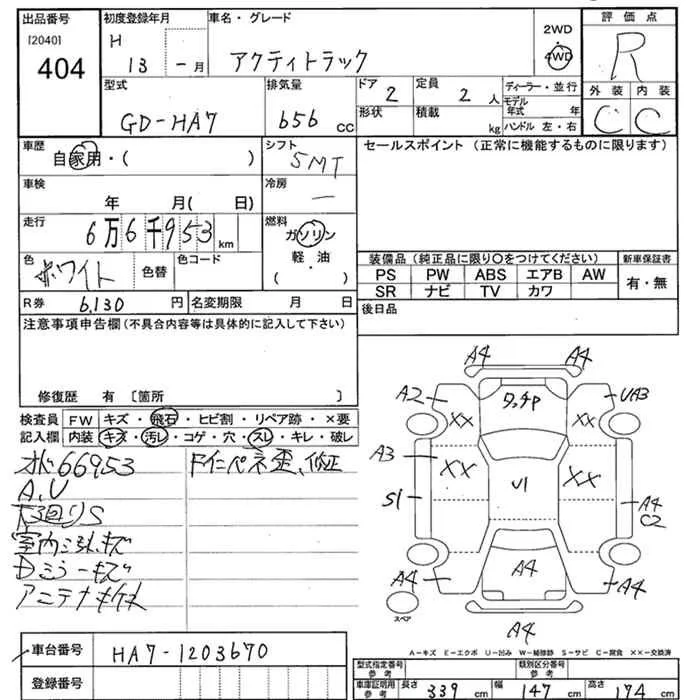 出品番号 初度登録年月 車名・グレード 2WD 評価点
[2040] H 4WD R
404 13 - 月 アクティトラック 外装 内装
型式 排気量 ドア 定員 ディーラー・並行 C C
GD-HA7 656 cc 2 2 人 モデル年式 年
形状 積載 kg ハンドル 左・右
車歴 自家用・( ) シフト 5MT セールスポイント (正常に機能するものに限ります)
車検 年 月( 日) 冷房 —
走行 6万6千953 km 燃料 ガソリン
軽・油
・
( )
色 ホワイト 色替 色コード 装備品 (純正品に限り〇をつけてください) 新車保証書
PS PW ABS エアB AW 有・無
SR ナビ TV カワ
R券 6,130 円 名変期限 月 日 後日品
注意事項申告欄 (不具合内容等は具体的に記入して下さい)
修復歴 有 [箇所 ]
検査員 FW キズ・飛石・ヒビ割・リペア跡・×要
記入欄 内装 キズ・汚レ・コゲ・穴・スレ・キレ・破レ
66953
A,U
下回りS
室内 キズ
Dミラーキズ
アンテナ
A4 A4
A2 ワッチP UA3
XX XX
A3 XX XX
S1 U1 A4
C2
A4 A4 A4
スペア
A4
A-キズ E-エクボ U-凹み W-補修跡 S-サビ C-腐食 XX-交換済
車台番号 HA7-1203670
登録番号
型式指定番号 参考 類別区分番号 参考
車庫証明用 参考 長さ 339 cm 幅 147 cm 高さ 174 cm